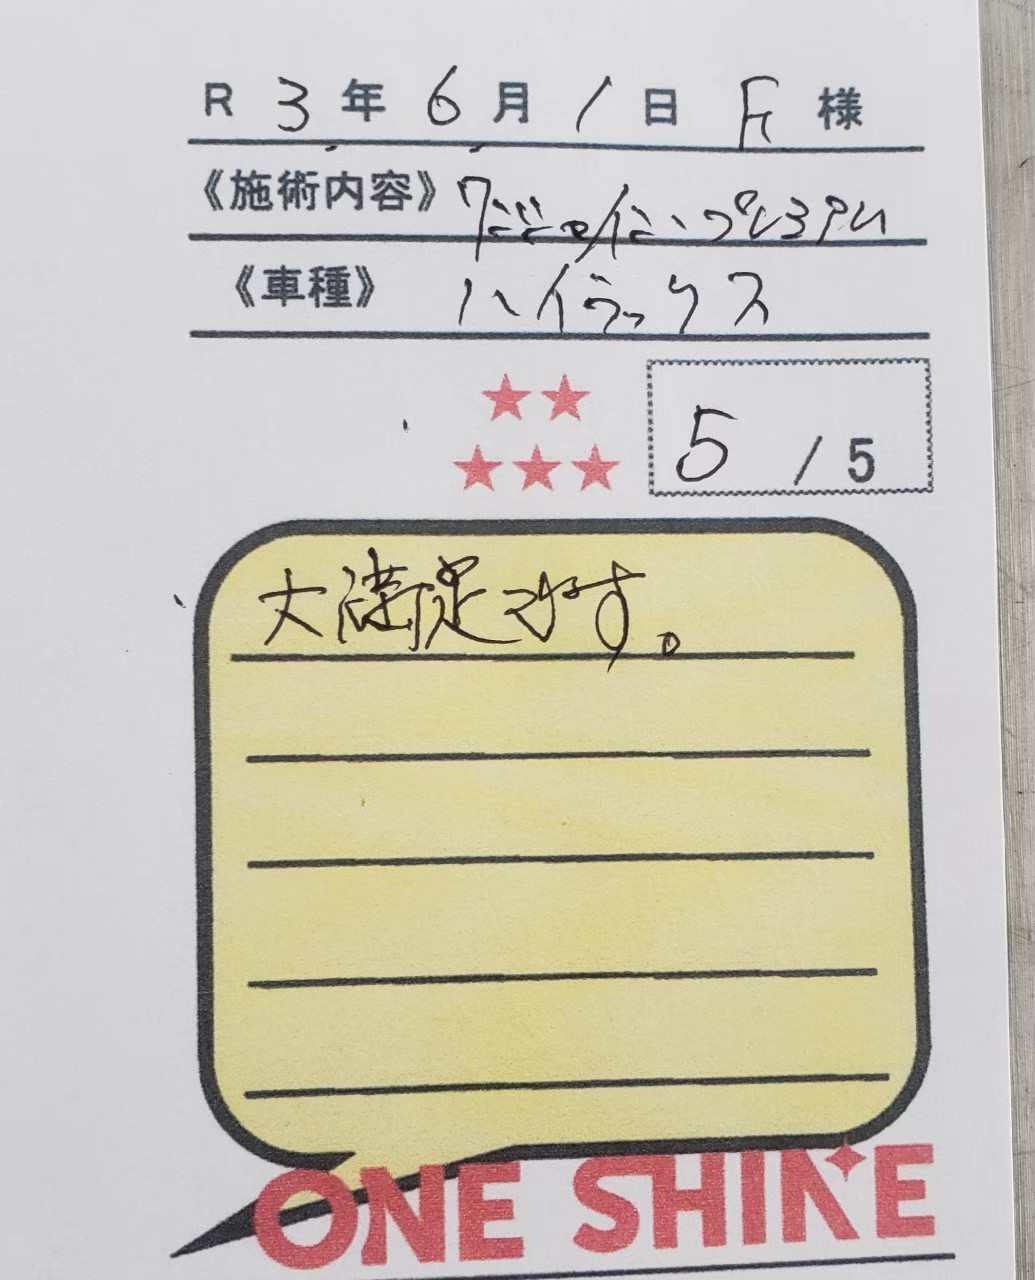 R 3年 6月 1日 F 様
《施術内容》 プレミアム
《車種》 ハイラックス
5 / 5
大満足です。
ONE SHINE